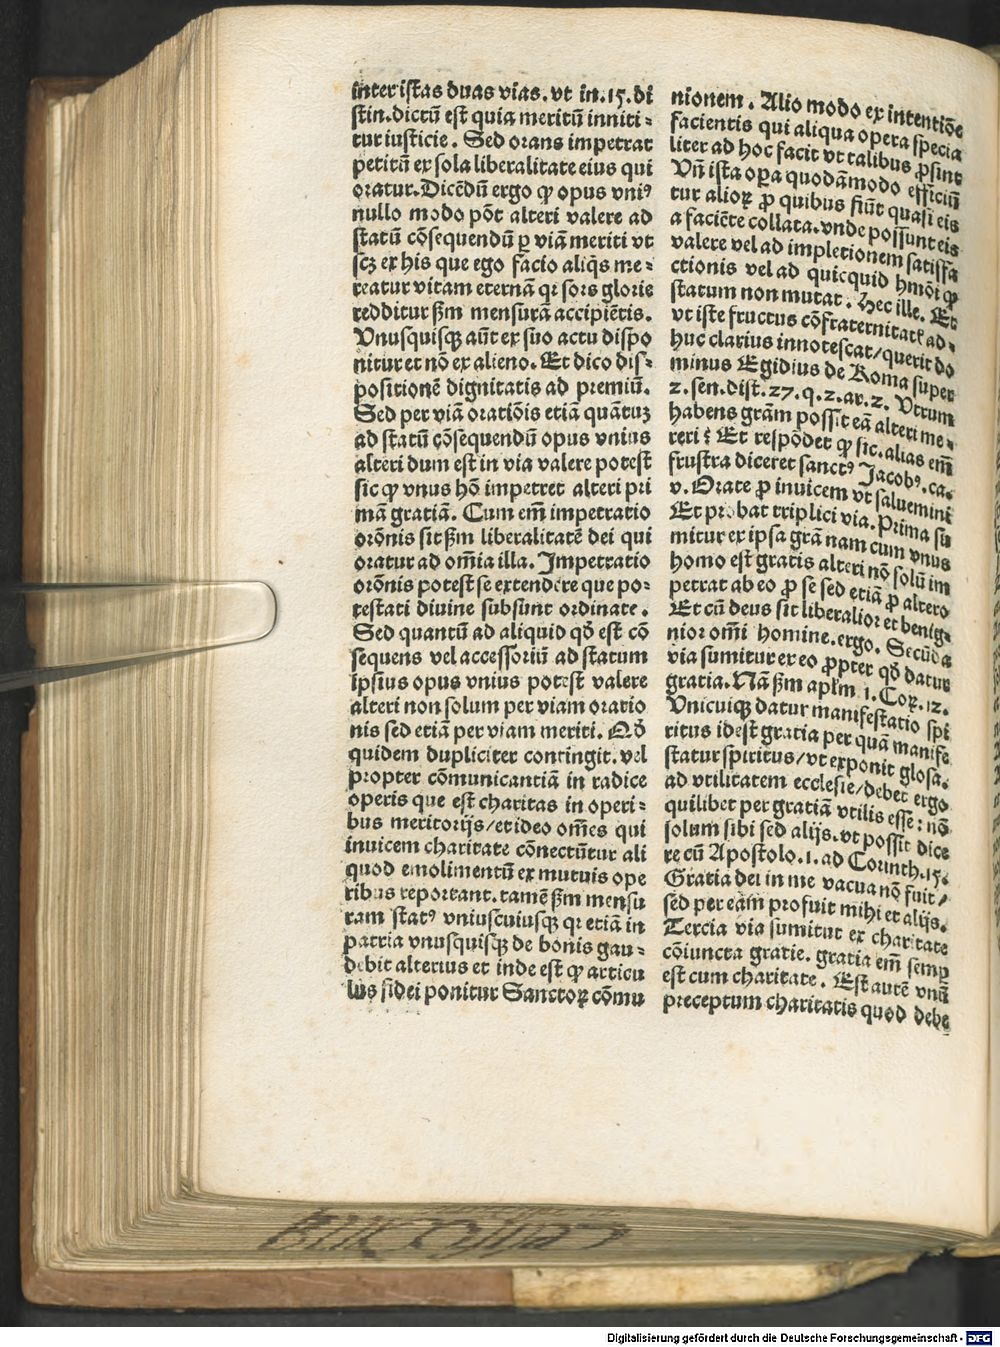 inter istas duas vias. vt in .15. di
stin. dictū est quia meritū inniti⸗
tur iusticie. Sed orans impetrat
petitū ex sola liberalitate eius qui
oratur. Dicēdū ergo ꝙ opus vniꝰ
nullo modo pōt alteri valere ad
statū cōsequendū ꝑ viā meriti vt
scꝫ ex his que ego facio aliq̄s me⸗
reatur vitam eternā qr sors glorie
redditur ẜm mensurā accipiētis.
Vnusquisqꝫ aūt ex suo actu dispo
nitur et nō ex alieno. Et dico dis⸗
positionē dignitatis ad premiū.
Sed per viā oratiōis etiā quātuꝫ
ad statū cōsequendū opus vnius
alteri dum est in via valere potest
sic ꝙ vnus hō impetret alteri pri
mā gratiā. Cum em̄ impetratio
orōnis sit ẜm liberalitatē dei qui
oratur ad om̄ia illa. Impetratio
orōnis potest se extendere que po⸗
testati diuine subsunt ordinate.
Sed quantū ad aliquid qd̄ est cō
sequens vel accessoriū ad statum
ipsius opus vnius potest valere
alteri non solum per viam oratio
nis sed etiā per viam meriti. Qd̄
quidem dupliciter contingit. vel
propter cōmunicantiā in radice
operis que est charitas in operi⸗
bus meritorijs/et ideo om̄es qui
inuicem charitate cōnectūtur ali
quod emolimentū ex mutuis ope
ribus reportant. tamē ẜm mensu
ram statꝰ vniuscuiusqꝫ qr etiā in
patria vnusquisqꝫ de bonis gau⸗
debit alterius et inde est ꝙ articu
lus fidei ponitur Sanctoꝝ cōmu
nionem. Alio modo ex intentiōe
facientis qui aliqua opera specia
liter ad hoc facit vt talibus ꝓsint
Vn̄ ista oꝑa quodāmodo efficiū
tur alioꝝ ꝓ quibus fiūt quasi eis
a faciēte collata. vnde possunt eis
valere vel ad impletionem satisfa
ctionis vel ad quicquid hmōi ꝙ
statum non mutat. Hec ille. Et
vt iste fructus cōfraternitatꝭ ad⸗
huc clarius innotescat/querit do
minus Egidius de Roma super
2. sen. dist. 27. q. 2. ar. 2. Vtrum
habens grām possit eā alteri me⸗
reri? Et respōdet ꝙ sic. alias em̄
frustra diceret sanctꝰ Jacobꝰ. ca.
v. Orate ꝓ inuicem vt saluemini
Et probat triplici via. Prima su
mitur ex ipsa grā nam cum vnus
homo est gratis alteri nō solū im
petrat ab eo ꝓ se sed etiā ꝓ altero
Et cū deus sit liberalior et benig⸗
nior om̄i homine. ergo. Secūda
via sumitur ex eo ꝓpter qd̄ datur
gratia. Nā ẜm apl̄m 1. Coꝝ. 12.
Vnicuiqꝫ datur manifestatio spi
ritus idest gratia per quā manife
statur spiritus/vt exponit glosa.
ad vtilitatem ecclesie/debet ergo
quilibet per gratiā vtilis esse: nō
solum sibi sed alijs. vt possit dice
re cū Apostolo. 1. ad Corinth. 15.
Gratia dei in me vacua nō fuit/
sed per eam profuit mihi et alijs.
Tercia via sumitur ex charitate
cōiuncta gratie. gratia em̄ semꝑ
est cum charitate. Est autē vnū
preceptum charitatis quod debe
Digitalisierung gefördert durch die Deutsche Forschungsgemeinschaft - DFG